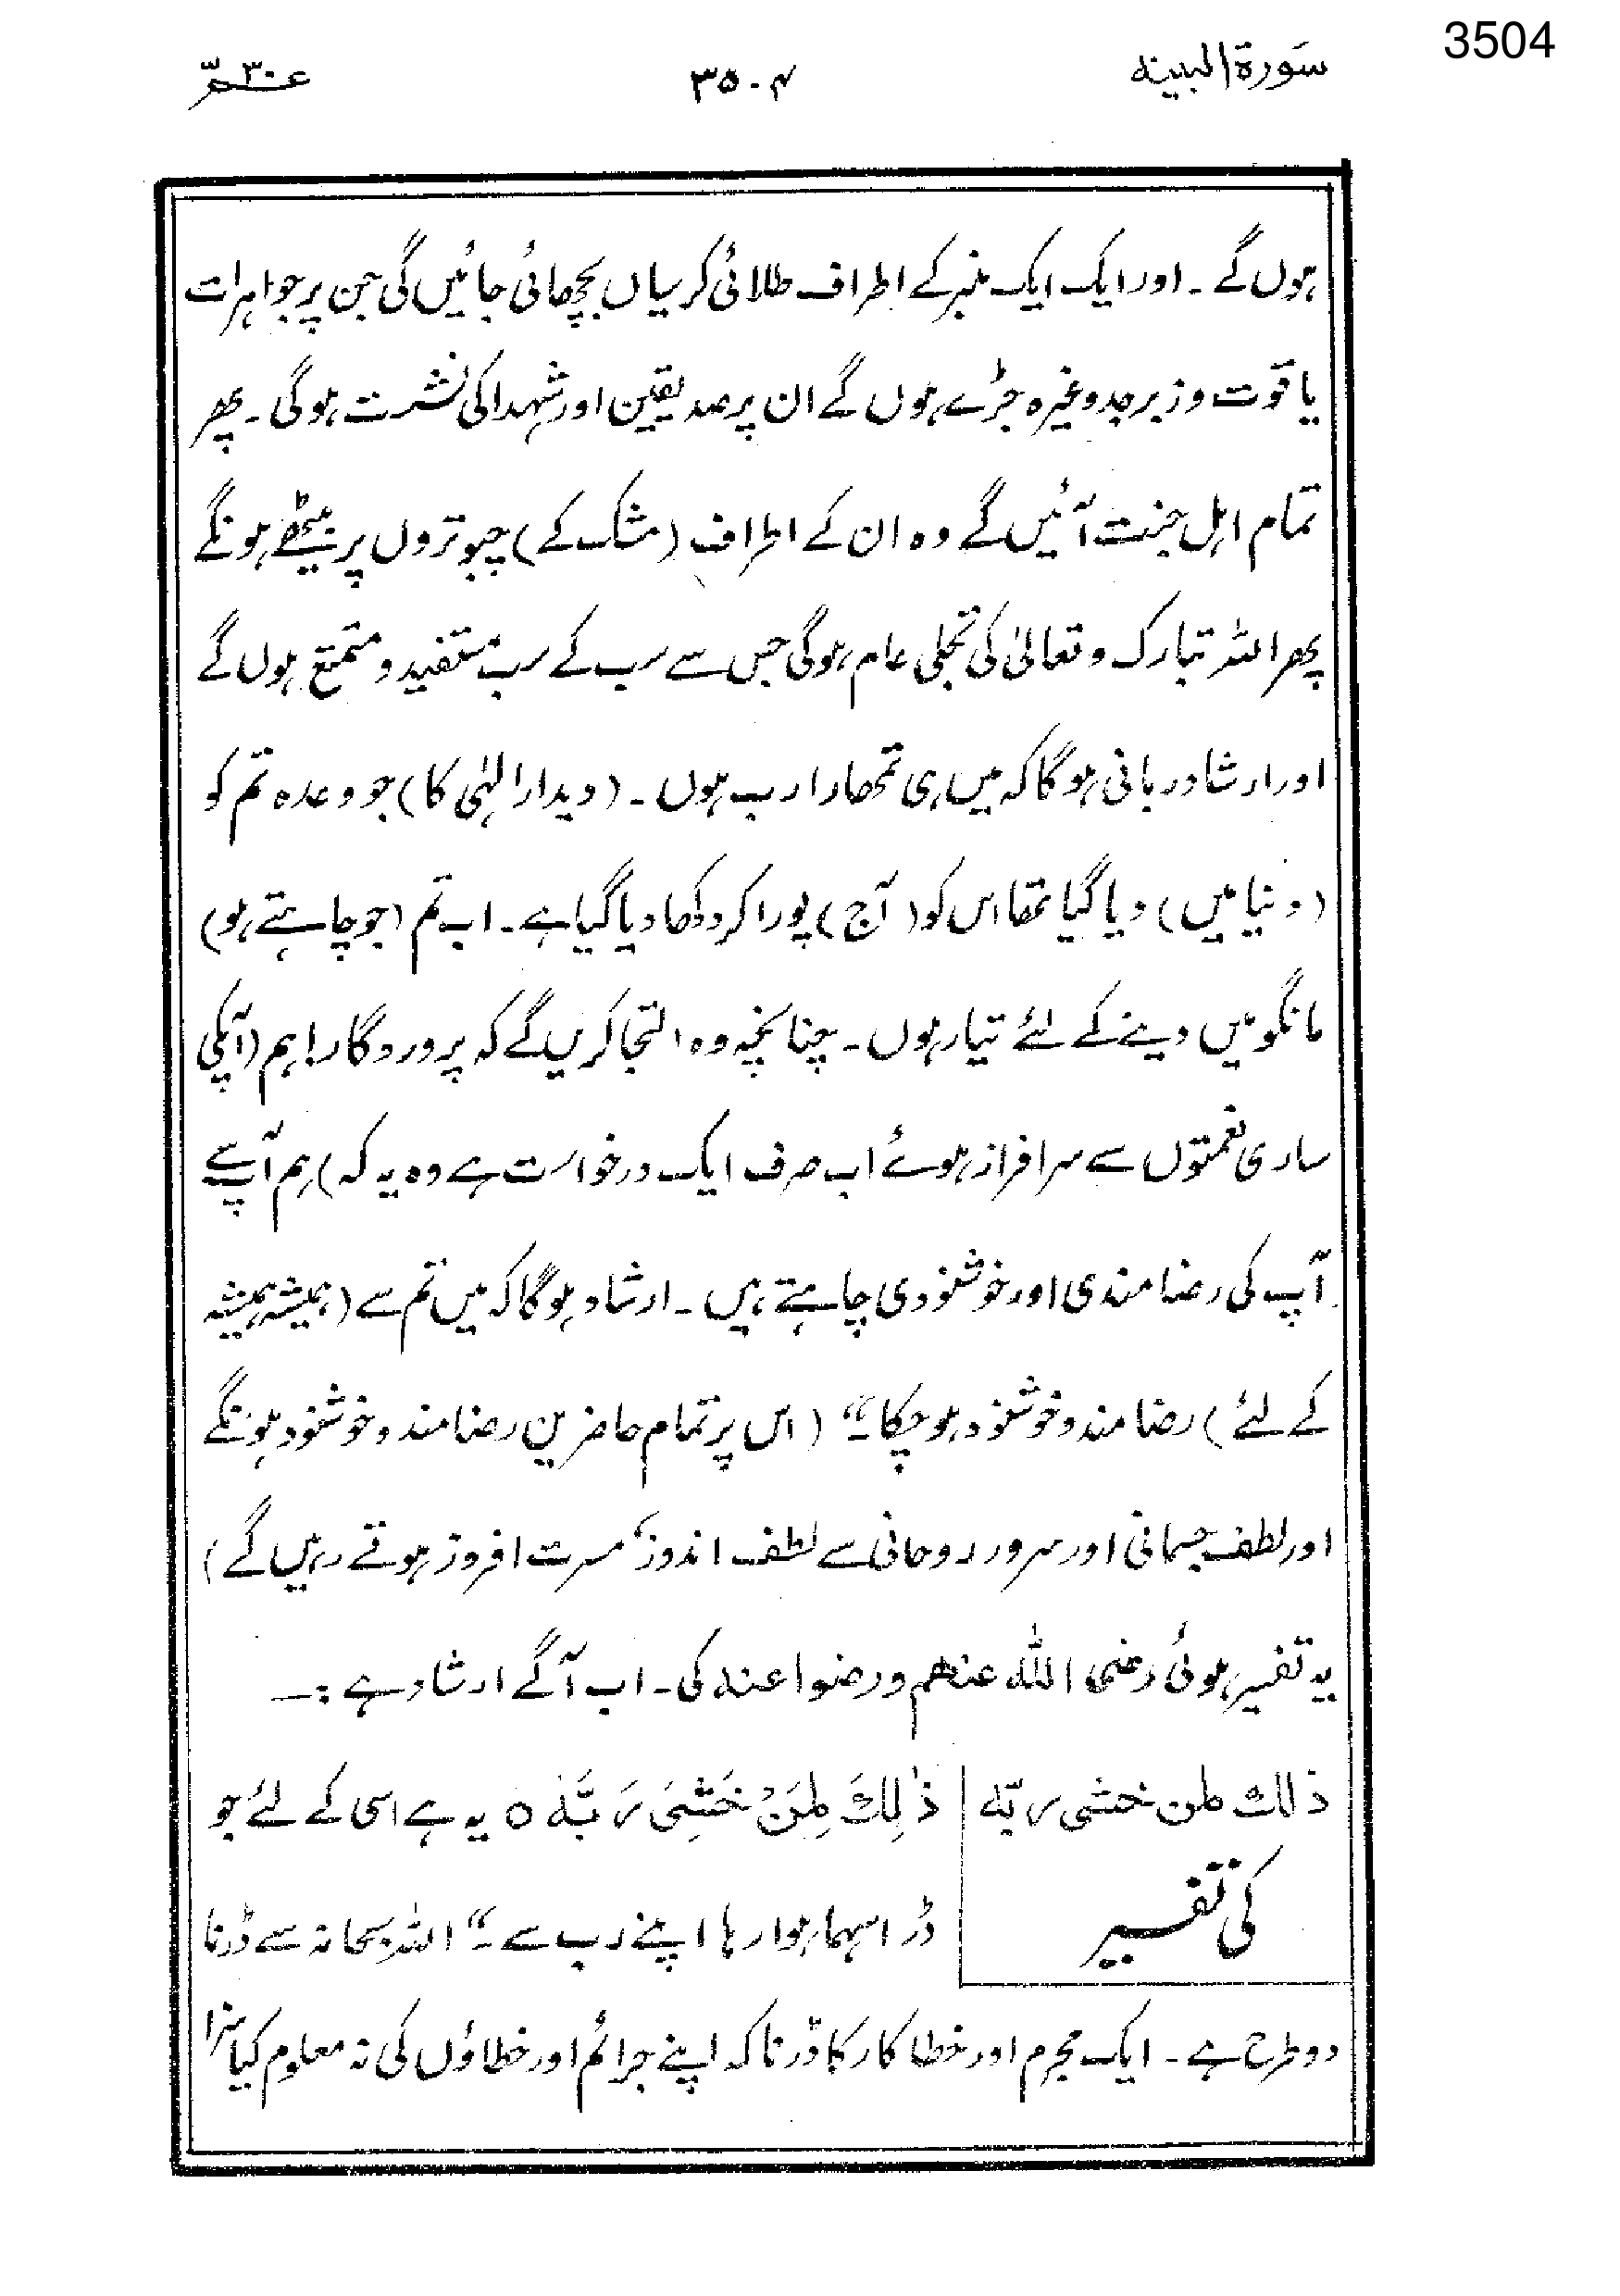 3504
سورة البینه ۳۵۰۴ عــمّ ۳۰
ہوں گے ۔ اور ایک ایک منبر کے اطراف طلائی کرسیاں بچھائی جائیں گی جن پر جواہرات
یاقوت و زبرجد وغیرہ جڑے ہوں گے ان پر صدیقین اور شہدا کی نشست ہوگی ۔ پھر
تمام اہل جنت آئیں گے وہ ان کے اطراف (مشک کے) چبوتروں پر بیٹھے ہونگے
پھر اللہ تبارک وتعالیٰ کی تجلی عام ہوگی جس سے سب کے سب مستفید و متمتع ہوں گے
اور ارشاد ربانی ہوگا کہ میں ہی تمھارا رب ہوں ۔ (دیدار الہٰی کا) جو وعدہ تم کو
(دنیا میں) دیا گیا تھا اس کو (آج) پورا کر دکھا دیا گیا ہے ۔ اب تم (جو چاہتے ہو)
مانگو میں دینے کے لئے تیار ہوں ۔ چنانچہ وہ التجا کریں گے کہ پروردگار! ہم (آپکی
ساری نعمتوں سے سرافراز ہوئے اب صرف ایک درخواست ہے وہ یہ کہ) ہم آپسے
آپ کی رضامندی اور خوشنودی چاہتے ہیں ۔ ارشاد ہوگا کہ میں تم سے (ہمیشہ ہمیشہ
کے لئے) رضامند و خوشنود ہو چکا ۔“ (اس پر تمام حاضرین رضامند و خوشنود ہونگے
اور لطف جسمانی اور سرور روحانی سے لطف اندوز، مسرت افروز ہوتے رہیں گے)
یہ تفسیر ہوئی رضی اللہ عنھم ورضوا عنہ کی ۔ اب آگے ارشاد ہے :۔
ذلك لمن خشی ربّه
کی تفسیر
ذٰلِكَ لِمَنْ خَشِیَ رَبَّهٗ ○ یہ ہے اسی کے لئے جو
ڈرا سہما ہوا رہا اپنے رب سے ۔“ اللہ سبحانہ سے ڈرنا
دو طرح ہے ۔ ایک مجرم اور خطا کار کا ڈرنا کہ اپنے جرائم اور خطاؤں کی نہ معلوم کیا سزا